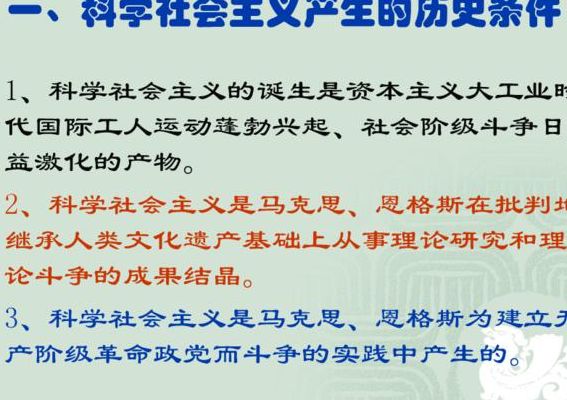 一、科学社会主义产生的历史条件
1、科学社会主义的诞生是资本主义大工业时
代国际工人运动蓬勃兴起、社会阶级斗争日
益激化的产物。
2、科学社会主义是马克思、恩格斯在批判地
继承人类文化遗产基础上从事理论研究和理
论斗争的成果结晶。
3、科学社会主义是马克思、恩格斯为建立无
产阶级革命政党而斗争的实践中产生的。